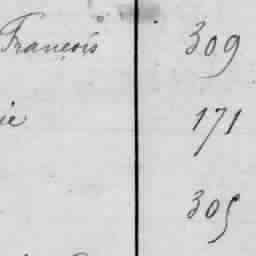 François 309
ie 171
305